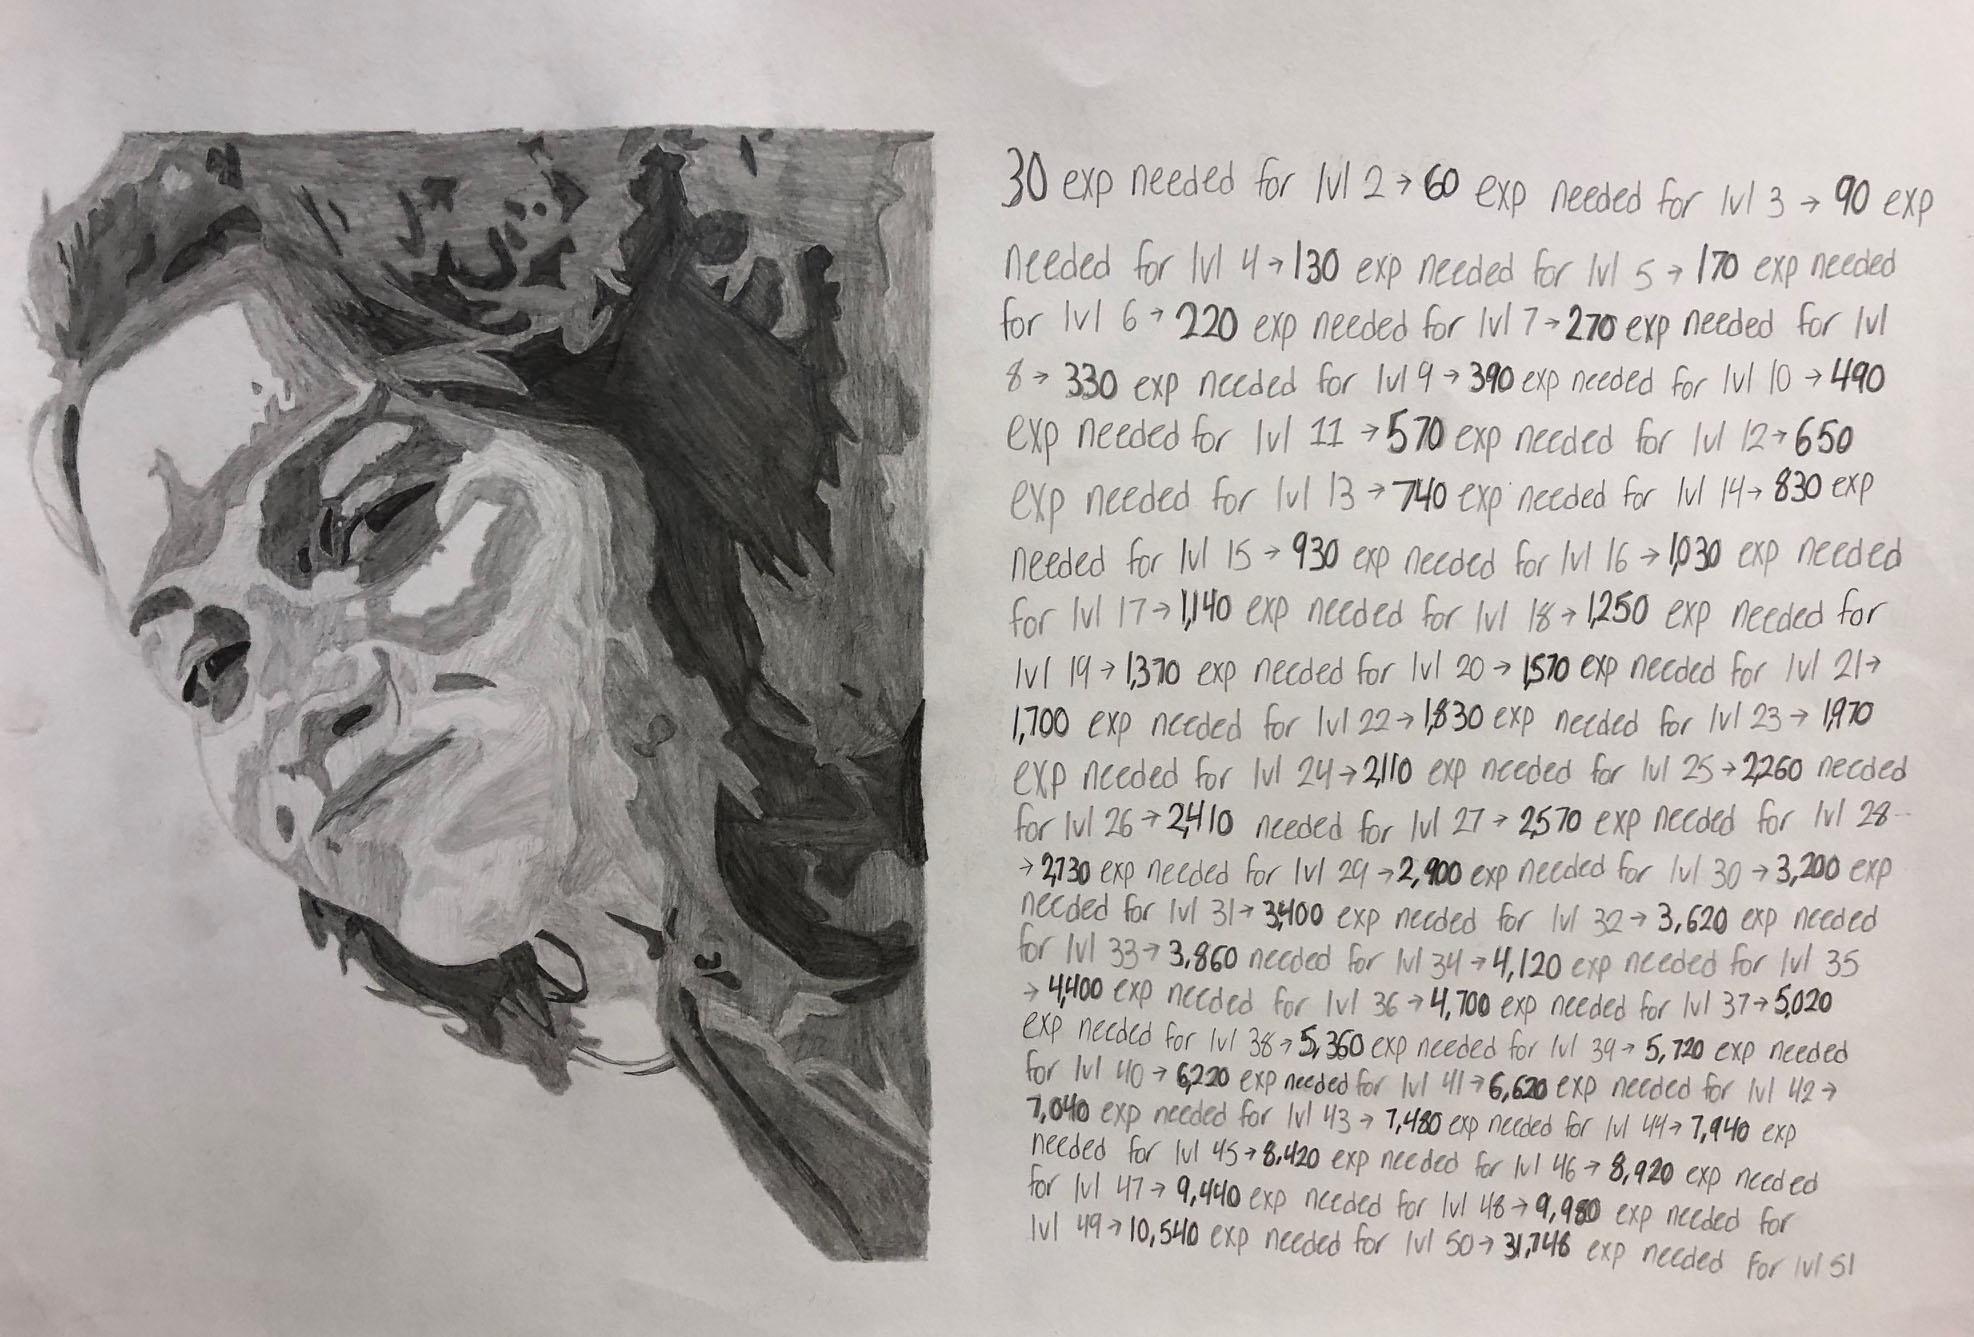 30 exp needed for lvl 2 → 60 exp needed for lvl 3 → 90 exp
needed for lvl 4 → 130 exp needed for lvl 5 → 170 exp needed
for lvl 6 → 220 exp needed for lvl 7 → 270 exp needed for lvl
8 → 330 exp needed for lvl 9 → 390 exp needed for lvl 10 → 490
exp needed for lvl 11 → 570 exp needed for lvl 12 → 650
exp needed for lvl 13 → 740 exp needed for lvl 14 → 830 exp
needed for lvl 15 → 930 exp needed for lvl 16 → 1,030 exp needed
for lvl 17 → 1,140 exp needed for lvl 18 → 1,250 exp needed for
lvl 19 → 1,370 exp needed for lvl 20 → 1,570 exp needed for lvl 21 →
1,700 exp needed for lvl 22 → 1,830 exp needed for lvl 23 → 1,970
exp needed for lvl 24 → 2,110 exp needed for lvl 25 → 2,260 needed
for lvl 26 → 2,410 needed for lvl 27 → 2,570 exp needed for lvl 28
→ 2,730 exp needed for lvl 29 → 2,900 exp needed for lvl 30 → 3,200 exp
needed for lvl 31 → 3,400 exp needed for lvl 32 → 3,620 exp needed
for lvl 33 → 3,860 needed for lvl 34 → 4,120 exp needed for lvl 35
→ 4,400 exp needed for lvl 36 → 4,700 exp needed for lvl 37 → 5,020
exp needed for lvl 38 → 5,360 exp needed for lvl 39 → 5,720 exp needed
for lvl 40 → 6,220 exp needed for lvl 41 → 6,620 exp needed for lvl 42 →
7,040 exp needed for lvl 43 → 7,480 exp needed for lvl 44 → 7,940 exp
needed for lvl 45 → 8,420 exp needed for lvl 46 → 8,920 exp needed
for lvl 47 → 9,440 exp needed for lvl 48 → 9,980 exp needed for
lvl 49 → 10,540 exp needed for lvl 50 → 31,748 exp needed for lvl 51